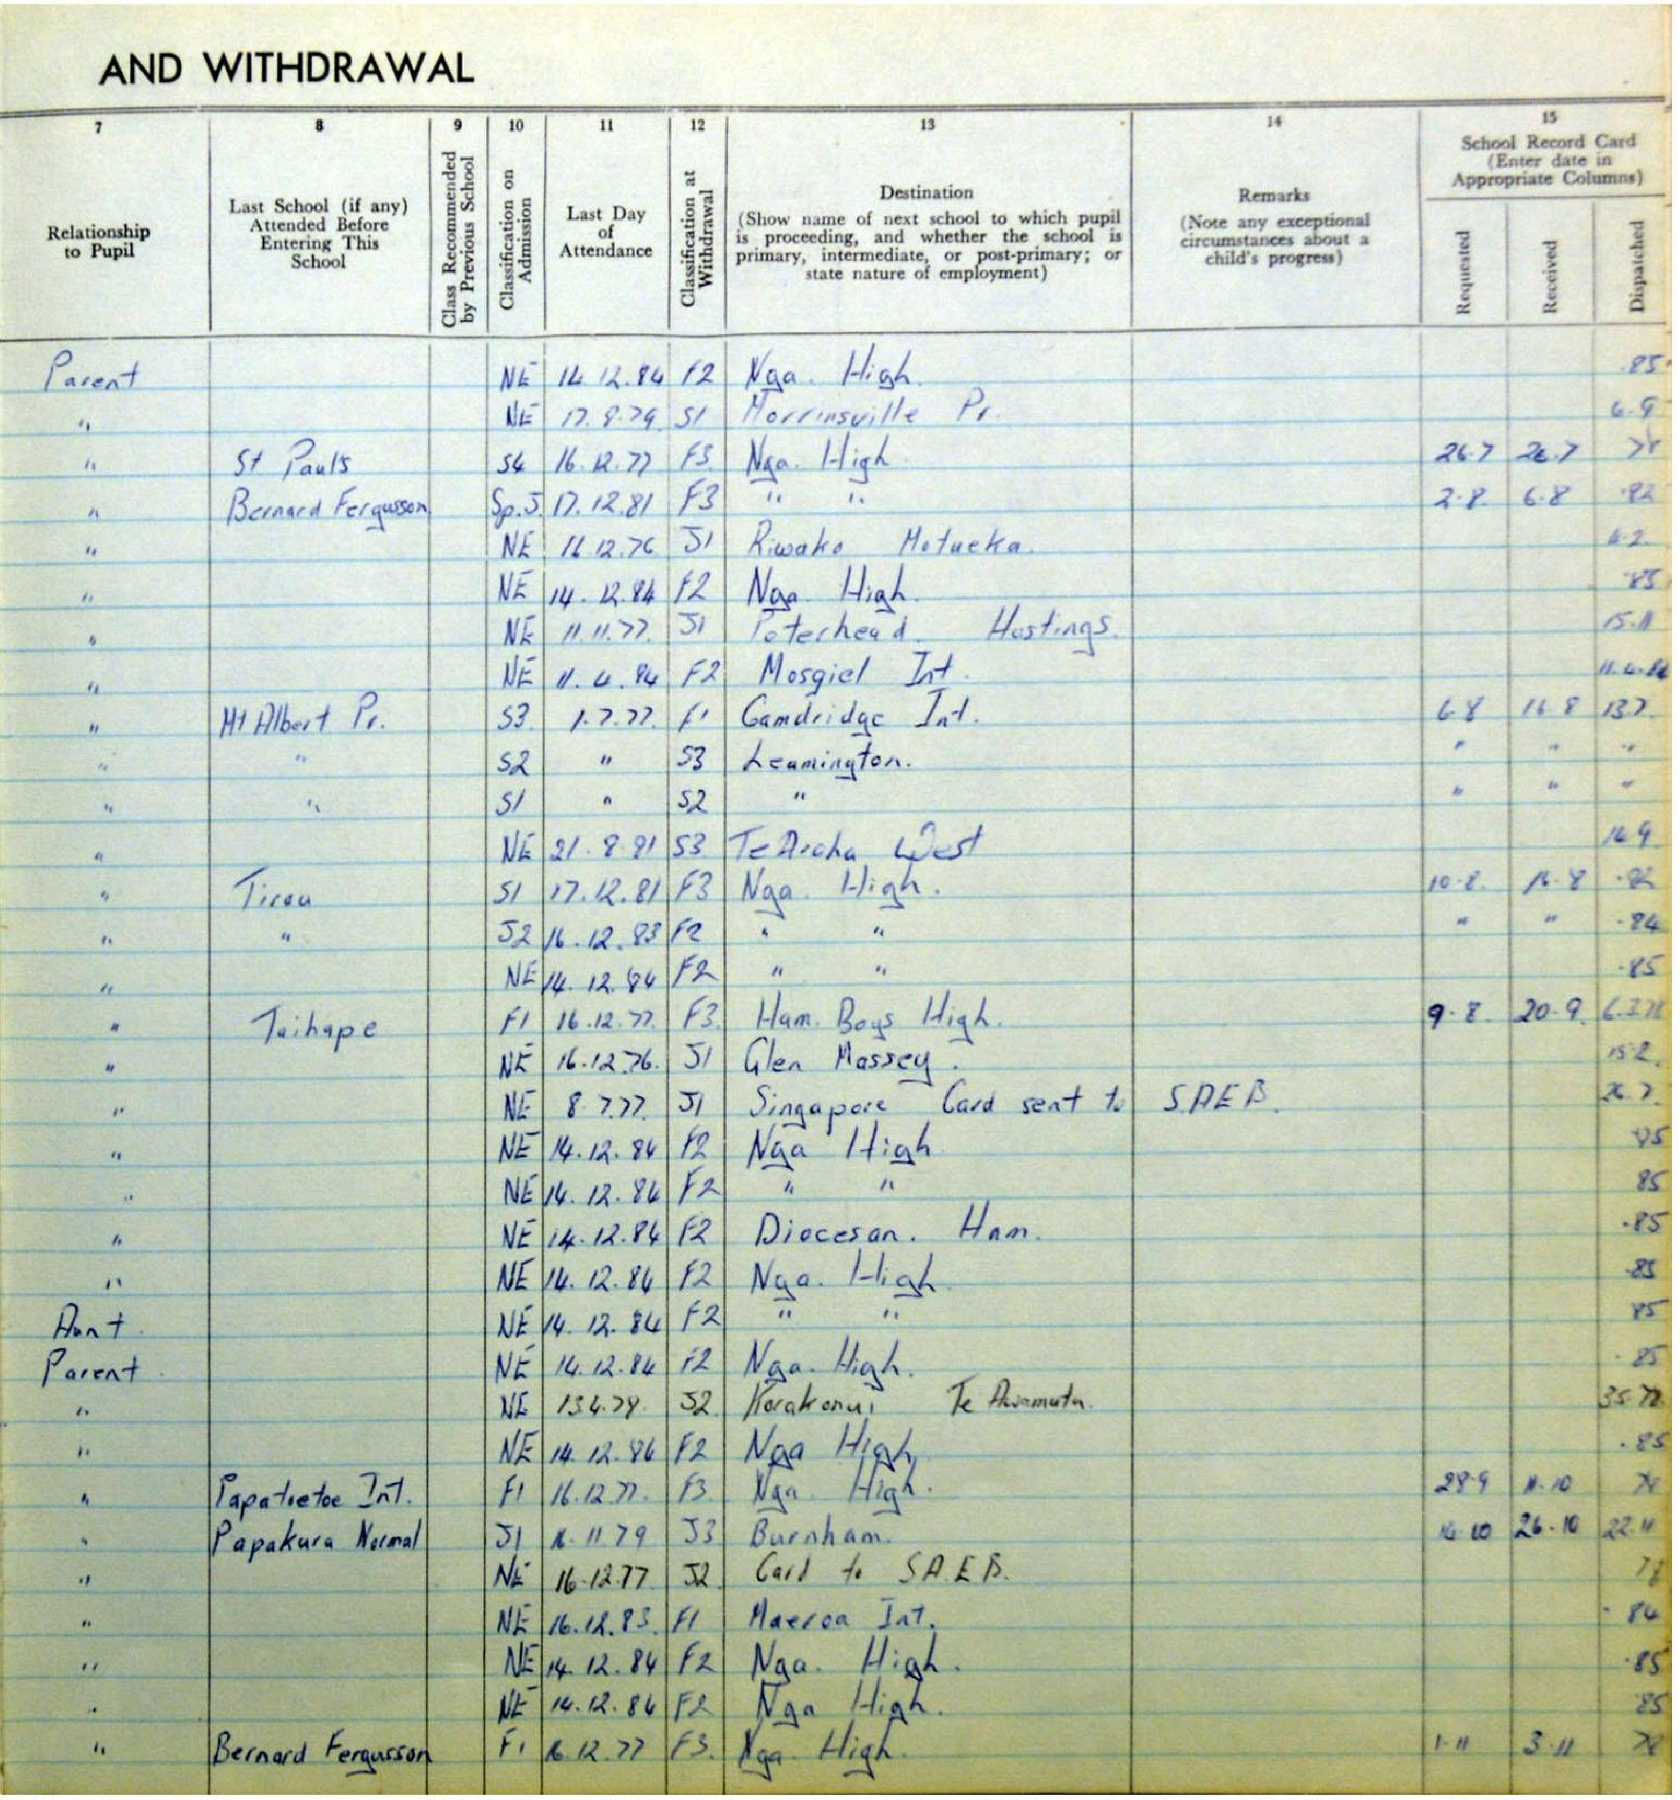 AND WITHDRAWAL
7 8 9 10 11 12 13 14 15
Relationship to Pupil
Last School (if any) Attended Before Entering This School
Class Recommended by Previous School
Classification on Admission
Last Day of Attendance
Classification at Withdrawal
Destination
(Show name of next school to which pupil is proceeding, and whether the school is primary, intermediate, or post-primary; or state nature of employment)
Remarks
(Note any exceptional circumstances about a child's progress)
School Record Card
(Enter date in Appropriate Columns)
Requested
Received
Dispatched
Parent NE 14.12.84 F2 Nga. High. .85
" NE 17.8.79 S1 Morrinsville Pr. 6.9
" St Pauls S4 16.12.77 F3 Nga. High 26.7 26.7 78
" Bernard Fergusson Sp.J 17.12.81 F3 " " 2.8 6.8 .82
" NE 16.12.76 J1 Riwaka Motueka.
" NE 14.12.84 F2 Nga. High. .85
" NE 11.11.77 J1 Peterhead. Hastings. 15.11
" NE 11.4.84 F2 Mosgiel Int. 11.4.84
" Mt Albert Pr. S3 1.7.77. F1 Camdridge Int. 6.8 16.8 13.7
" " S2 " S3 Leamington. " " "
" " S1 " S2 " " " "
" NE 21.8.81 S3 Te Aroha West
" Tirau S1 17.12.81 F3 Nga. High. 10.8. 16.8 .82
" " J2 16.12.83 F2 " " " " .84
" NE 14.12.84 F2 " " .85
" Taihape F1 16.12.77. F3 Ham. Boys High. 9.8. 20.9. 6.2.78
" NE 16.12.76. J1 Glen Massey. 15.2.
" NE 8.7.77. J1 Singapore Card sent to S.A.E.B. 26.7.
" NE 14.12.84 F2 Nga High 85
" NE 14.12.84 F2 " " 85
" NE 14.12.84 F2 Diocesan. Ham. .85
" NE 14.12.84 F2 Nga. High .85
Aunt. NE 14.12.84 F2 " " 85
Parent NE 14.12.84 F2 Nga. High. .85
" NE 13.4.78. J2 Korakonui Te Awamutu. 3.5.78
" NE 14.12.84 F2 Nga High .85
" Papatoetoe Int. F1 16.12.77. F3 Nga. High. 28.9 11.10 78
" Papakura Normal J1 16.11.79 J3 Burnham. 26.10 22.11
" NE 16.12.77 J2 Card to S.A.E.B. 78
" NE 16.12.83. F1 Maeroa Int. .84
" NE 14.12.84 F2 Nga. High. .85
" NE 14.12.84 F2 Nga High. 85
" Bernard Fergusson F1 16.12.77 F3. Nga. High. 1.11 3.11 78